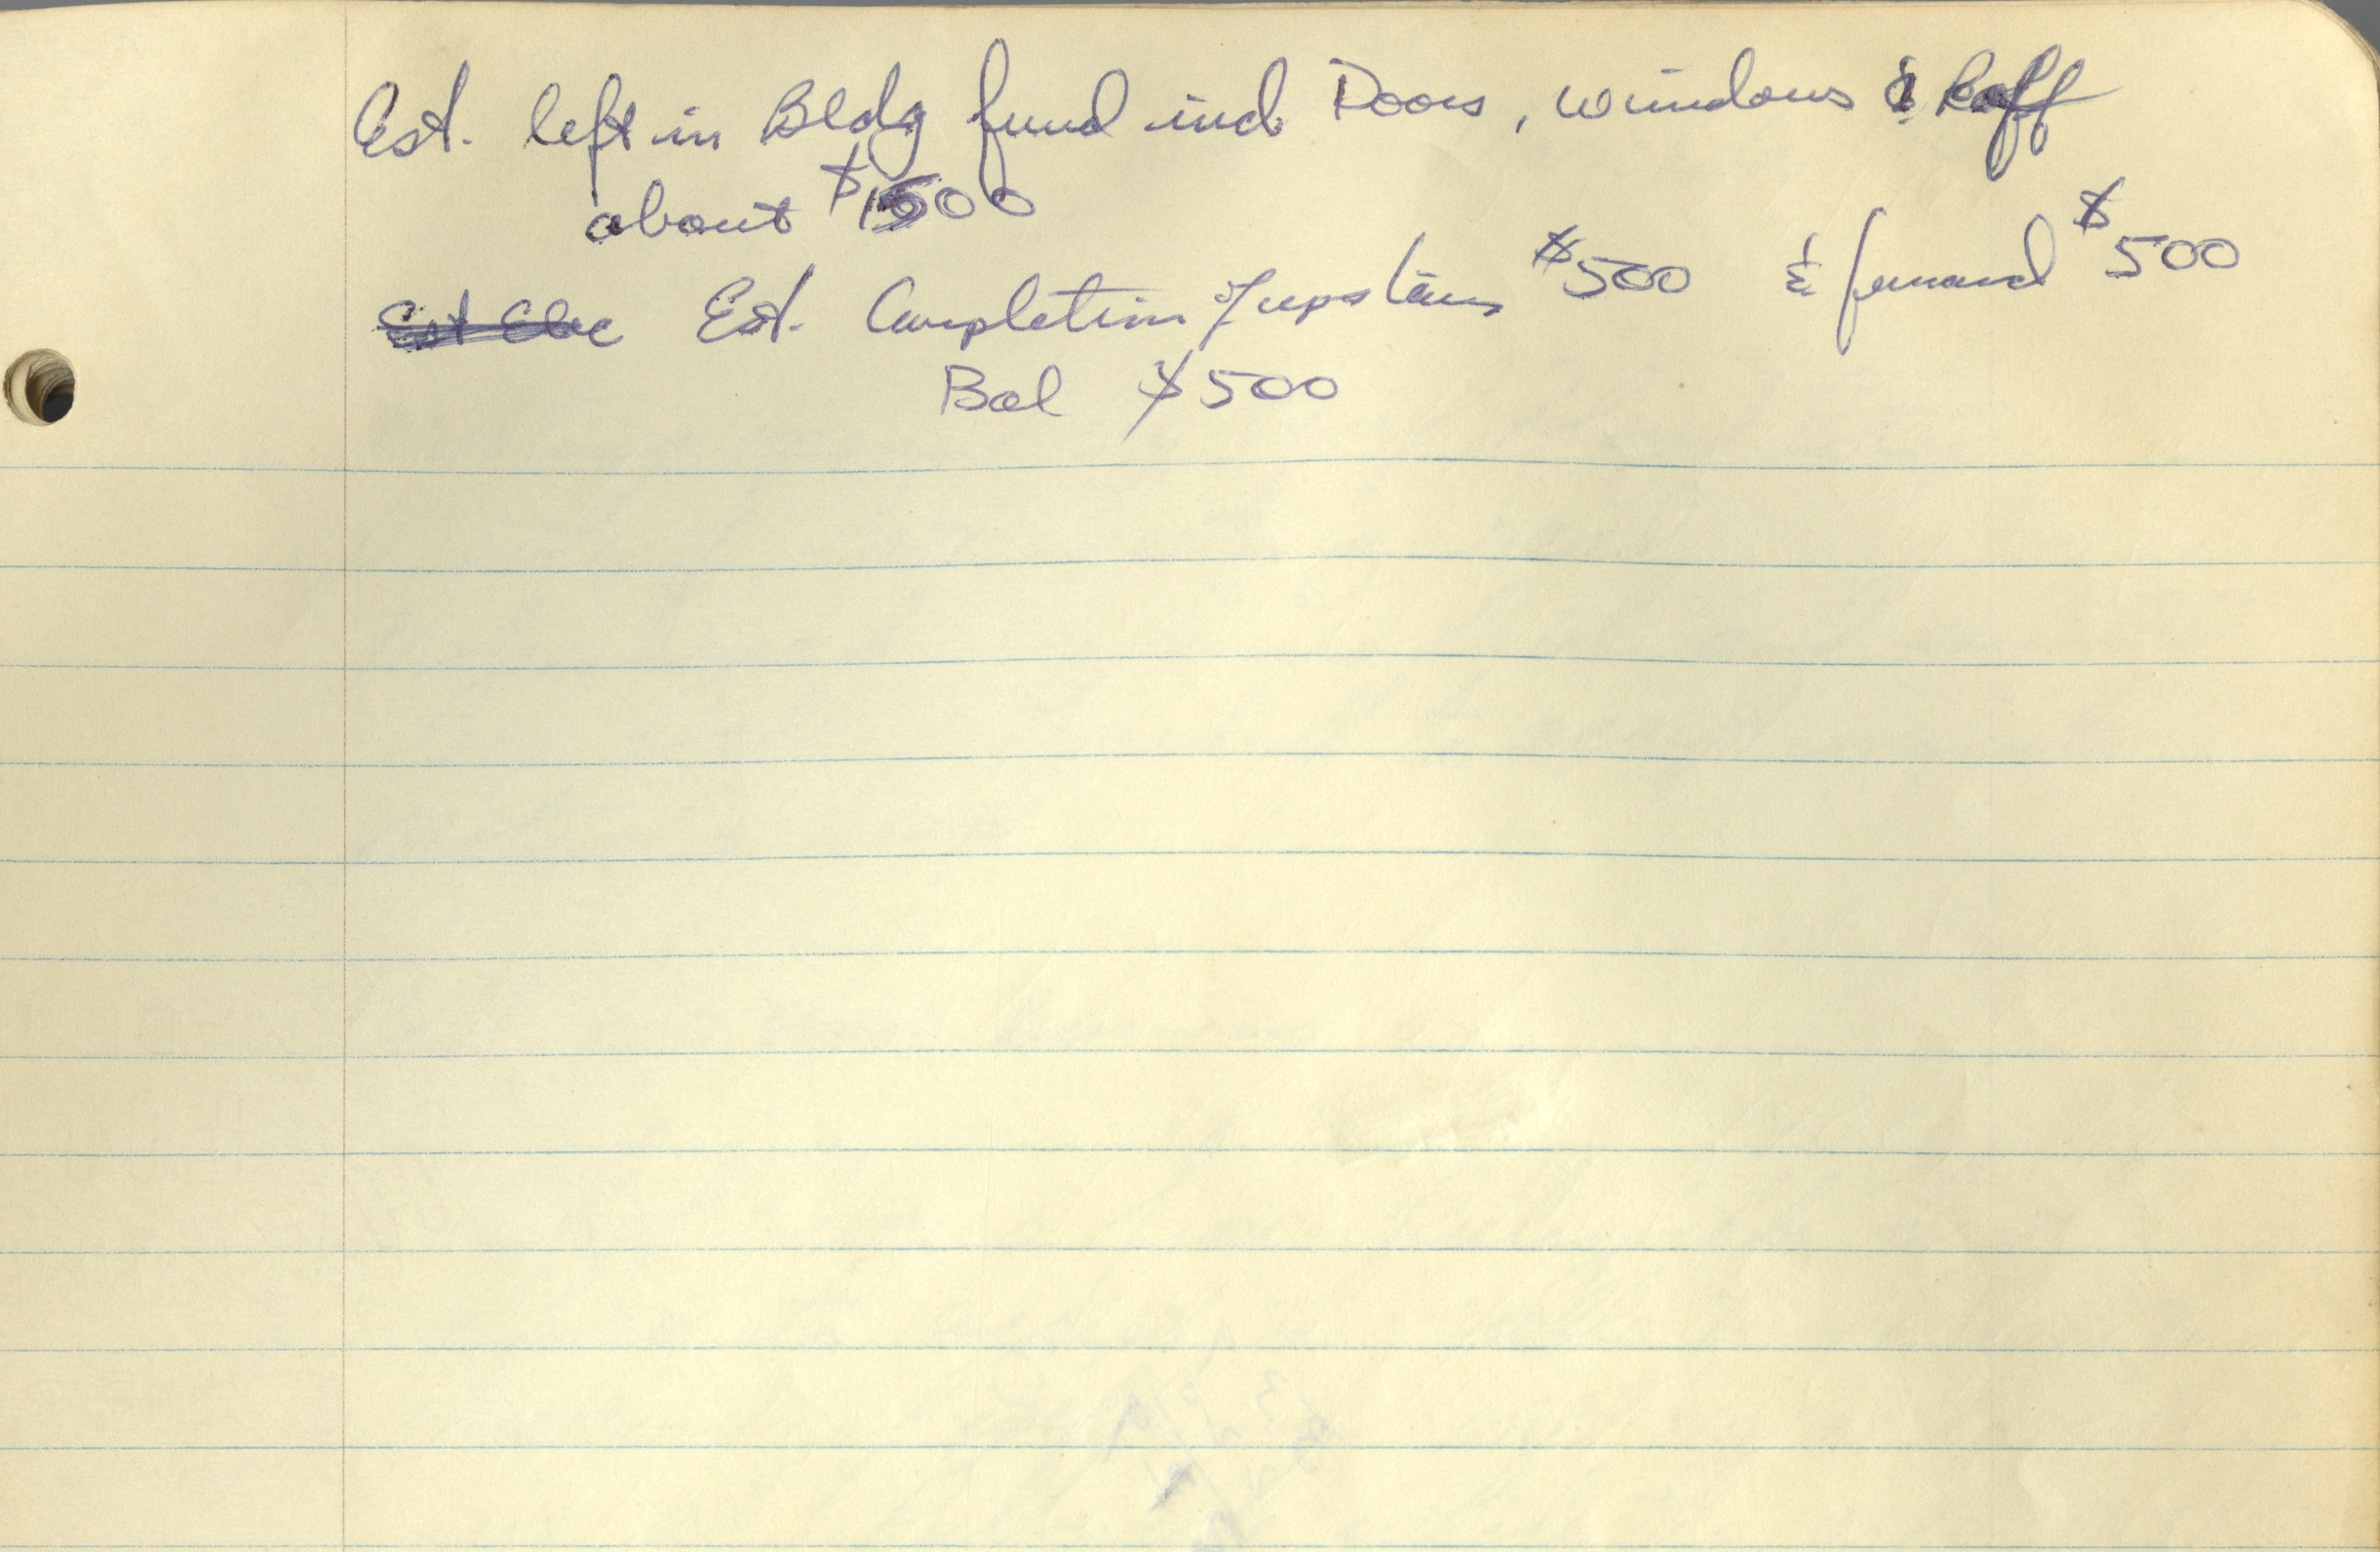 Est. left in Bldg fund incl. Doors, windows & Roff
about $1500
Est Elec Est. Completion of upstairs $500 & funand $500
Bal $500